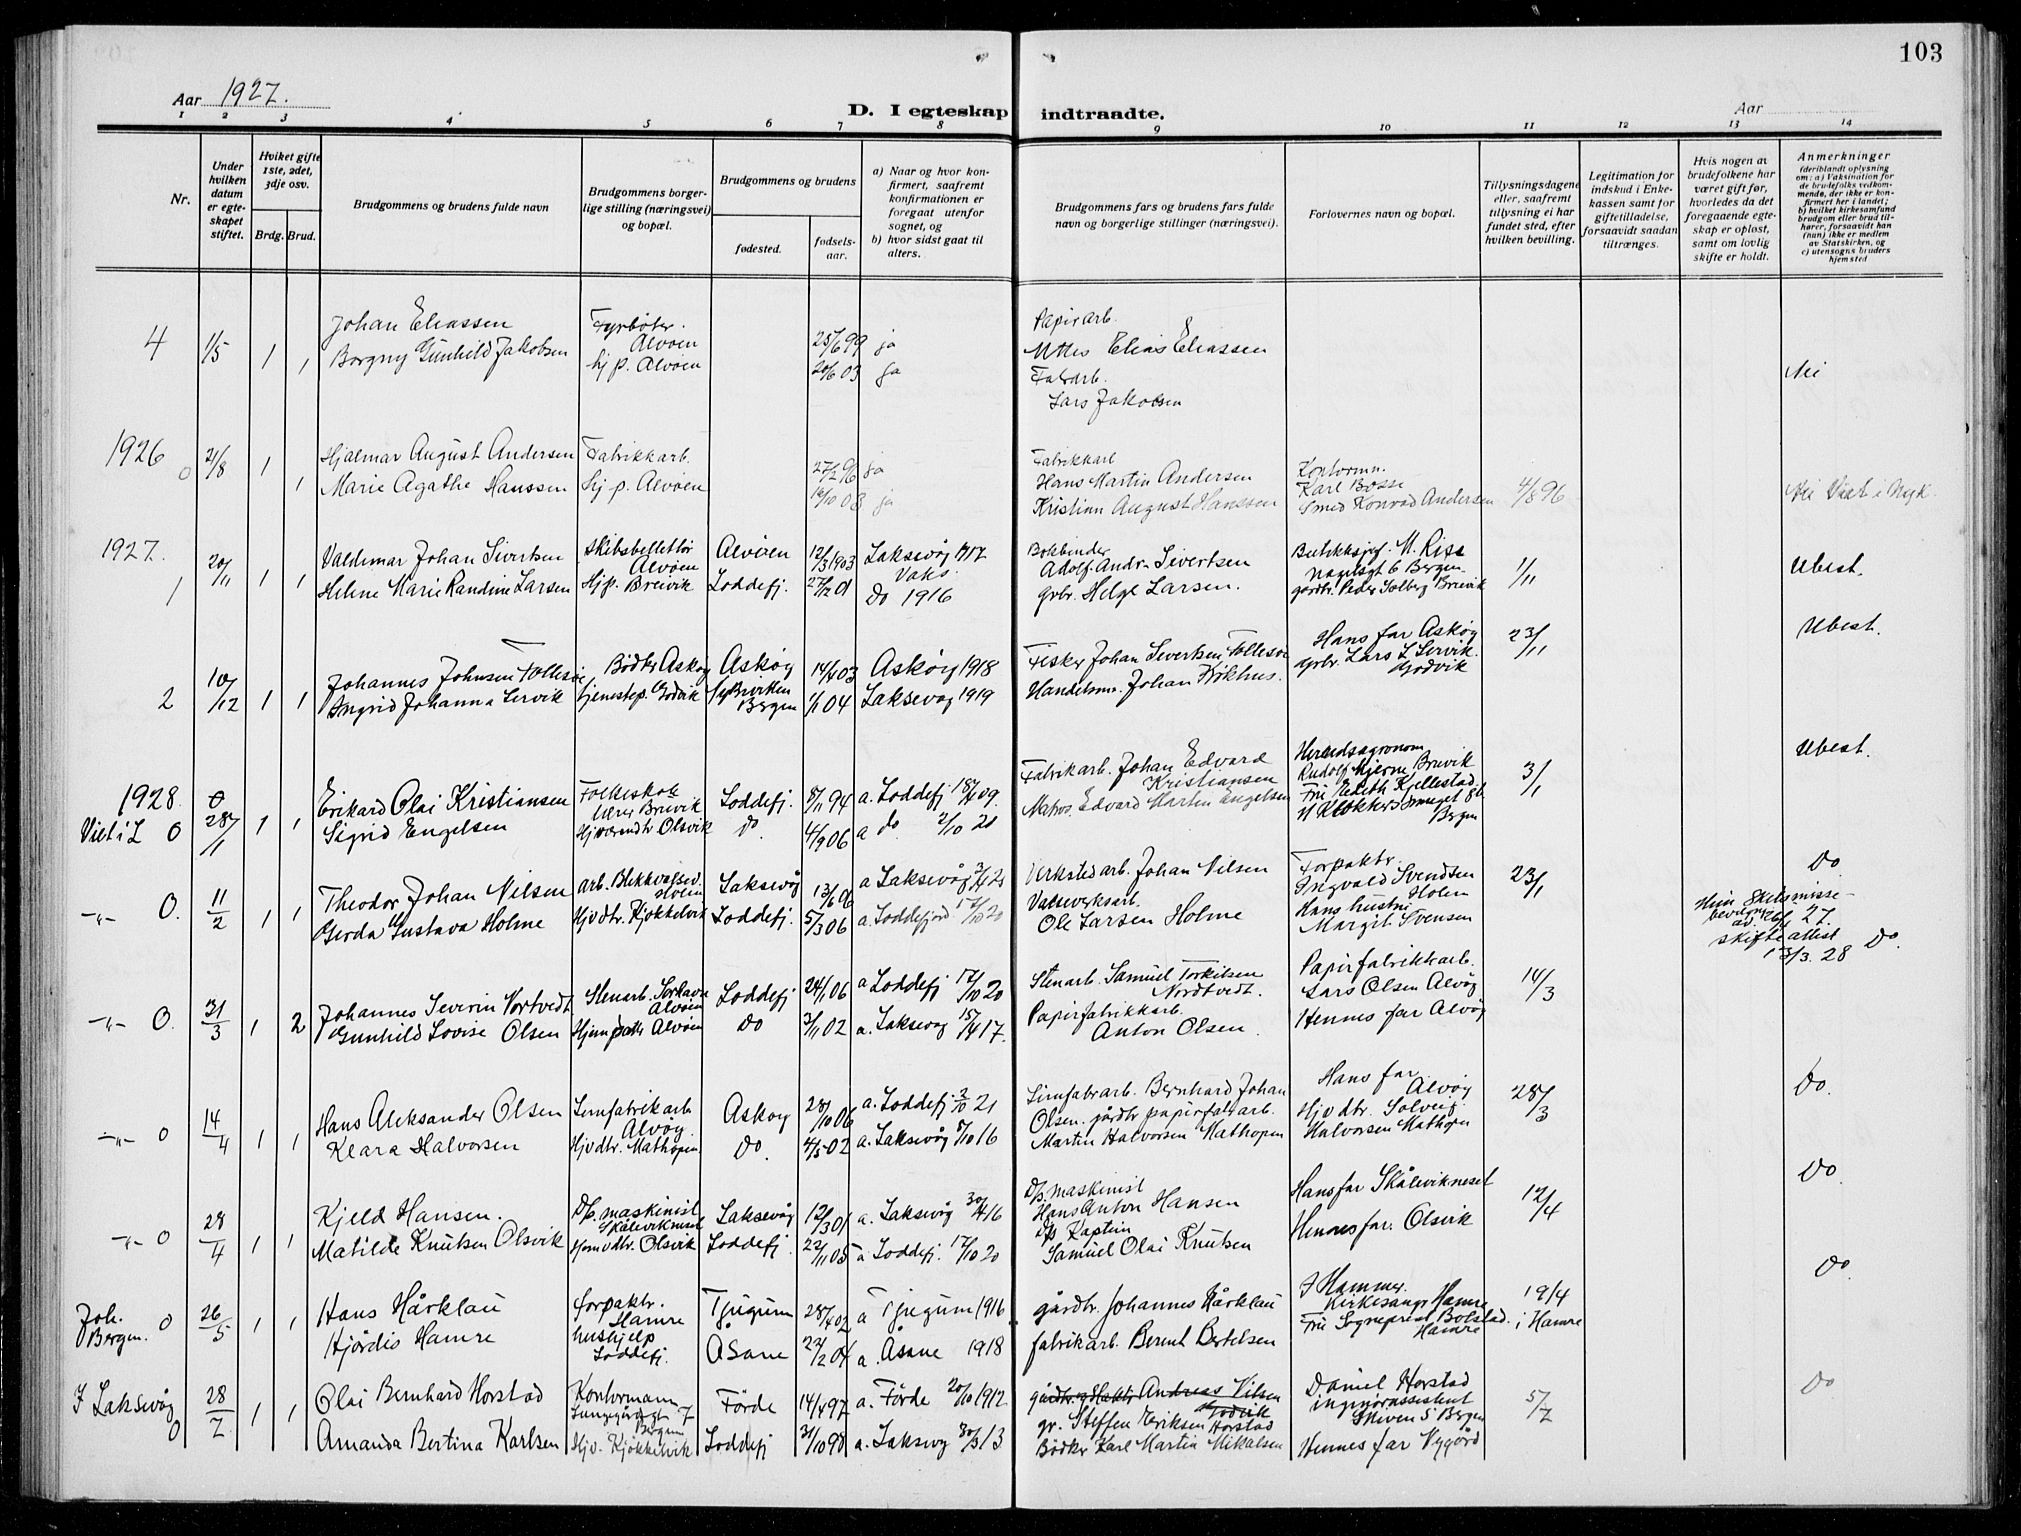 103
Aar 1927.
D. I egteskap indtraadte.
Aar
1 2 3 4 5 6 7 8 9 10 11 12 13 14
Nr.
Under hvilken datum er egteskapet stiftet.
Hviket gifte 1ste, 2det, 3dje osv.
Brdg. Brud.
Brudgommens og brudens fulde navn
Brudgommens borgerlige stilling (næringsvei) og bopæl.
Brudgommens og brudens
fødested.
fødselsaar.
a) Naar og hvor konfirmert, saafremt konfirmationen er foregaat utenfor sognet, og
b) hvor sidst gaat til alters.
Brudgommens fars og brudens fars fulde navn og borgerlige stillinger (næringsvei).
Forlovernes navn og bopæl.
Tillysningsdagene eller, saafremt tillysning ei har fundet sted, efter hvilken bevilling.
Legitimation for indskud i Enkekassen samt for giftetilladelse, forsaavidt saadan tiltrænges.
Hvis nogen av brudefolkene har været gift før, hvorledes da det foregaaende egteskap er opløst, samt om lovlig skifte er holdt.
Anmerkninger (deriblandt oplysning om: a) Vaksination for de brudefolks vedkommende, der ikke er konfirmert her i landet; b) hvilket kirkesamfund brudgom eller brud tilhører, forsaavidt han (hun) ikke er medlem av Statskirken, og c) utensogns bruders hjemsted
4 1/5 1 1
Johan Eliassen Fyrbøter. Alvøen 25/6 99 ja
Borgny Gunhild Jakobsen Hj p. Alvøen 20/6 03 ja
Papirarb.
Elias Eliassen
Fabrarb.
Lars Jakobsen
Nei
1926
0 21/8 1 1
Hjalmar August Andersen Fabrikkarb. 27/2 96 ja
Marie Agathe Hanssen Hj p. Alvøen 16/10 03 ja
Fabrikkarb
Hans Martin Andersen
Kristian August Hanssen
Kontormn.
Karl Bosse
Smed Konrad Andersen
4/8 96
Nei Viet i Nyk.
1927.
1 20/11 1 1
Valdemar Johan Sivertsen Skibsbelettør Alvøen Alvøen 12/3 1903 Laksevåg 1917 Vaks.
Helene Marie Randine Larsen Hjp. Breivik Loddefj. 27/12 01 Do 1916
Bokbinder
Adolf Andr. Sivertsen
Grbr. Helge Larsen.
Butikksjef. M. Riss
Nagelsgt 6 Bergen
gårdbr. Peder Solberg Breivik
1/11
Ubest.
2 10/12 1 1
Johannes Johnsen Follesøe Bødker Askøy Askøy 14/4 03 Askøy 1918
Ingrid Johanna Lervik tjenestep. Godvik Bergen 1/1 04 Laksevåg 1919
Fisker Johan Sivertsen Follesøe
Handelsm. Johan Røkhus.
Hans far Askøy
Grbr. Lars L Lervik.
Godvik
23/11
Ubest.
1928.
Viet i L 0 28/1 1 1
Erikard Olai Kristiansen Folkeskole lærer Breivik Loddefj. 8/11 94 a. Loddefj 18/4 09.
Sigrid Engelsen Hjværende Olsvik Do. 4/9 06 a do 2/10 21
Fabrikarb. Johan Edvard
Kristiansen
Matros Edvard Martin Engelsen
Herredsagronom
Rudolf Hjerne Breivik
Fru Edith Kjellestad
N Klokkersmuget 8b
Bergen
3/1
Ubest.
-"- 0. 11/2 1 1
Theodor Johan Nilsen arb. Blikkvalsev. Laksevåg 13/6 06 a Laksevåg 3/4 21
Gerda Gustava Holme Hjvdtr. Kjøkkelvik Loddefj. 5/3 06 a. Loddefjord 17/10 20
Verkstedarb. Johan Nilsen
Valseverksarb.
Ole Larsen Holme
Forpaktr.
Ingvald Svendsen
Holen
Hans hustru
Margit Svensen
23/1
Do.
-"- 0. 31/3 1 2
Johannes Severin Nortvedt Stenarb. Alvøen Loddefj 24/1 06 a Loddefj 17/10 20
Gunhild Lovise Olsen Alvøen Do 3/11 02 a. Laksevåg 15/4 17.
Stenarb. Samuel Torkilsen
Nordtvedt.
Papirfabrikkarb.
Anton Olsen.
Papirfabrikkarb.
Lars Olsen Alvøy
Hennes far Alvøy
14/3
Skilsmisse-
27.
skifteattest
13/3. 28
Do.
-"- 0 14/4 1 1
Hans Aleksander Olsen Limfabrikarb Alvøy Askøy 28/10 06 a. Loddefj 2/10 21
Klara Halvorsen Hjvdtr. Mathopen Do. 4/5 02 a. Laksevåg 8/10 16
Limfabrarb. Bernhard Johan
Olsen. gårdbr papirfabarb.
Martin Halvorsen Mathopen
Hans far
Alvøy
Hjvdtr. Solveig
Halvorsen Mathopn
28/3
Do.
-"- 0 28/4 1 1
Kjeld Hansen. D/s. maskinist Skåleviknesset Laksevåg 12/3 01 a. Laksevåg 30/4 16
Matilde Knutsen Olsvik Hjemvdtr. Olsvik Loddefj. 22/11 05 a Loddefj. 17/10 20
D/s. maskinist
Hans Anton Hansen
D/s Kaptein
Samuel Olai Knutsen
Hans far Skåleviknesset
Hennes far. Olsvik
12/4
Do
Joh. Bergen. 0 26/5 1 1
Hans Hårklau forpaktr. Hamre Tjugum 28/4 02 a Tjugum 1916
Hjørdis Hamre hushjelp Loddefj. Åsane 22/2 04 a. Åsane 1918
gårdbr. Johannes Hårklau
fabrikarb. Bernt Bertelsen
J Hammer.
Kirkesangr Hamre
Fru Sogneprest Bolstad.
Hamre
19/4 i Hamre
Do.
I Laksevåg 0 28/7 1 1
Olai Bernhard Horstad Kontormann Lungegårdsgt 7 Bergen Førde 14/4 97 a. Førde 20/10 1912
Amanda Bertina Karlsen Hjv. Kjøkkelvik Loddefj 31/10 98 a. Laksevg 30/3 13
Andreas Nilsen
Godvik
gr. Steffen Eriksen Horstad
Bødker Karl Martin Mikalsen
Daniel Horstad
ingeniørassistent
Skiven 5 Bergen
Hennes far Nygård
5/7
Do